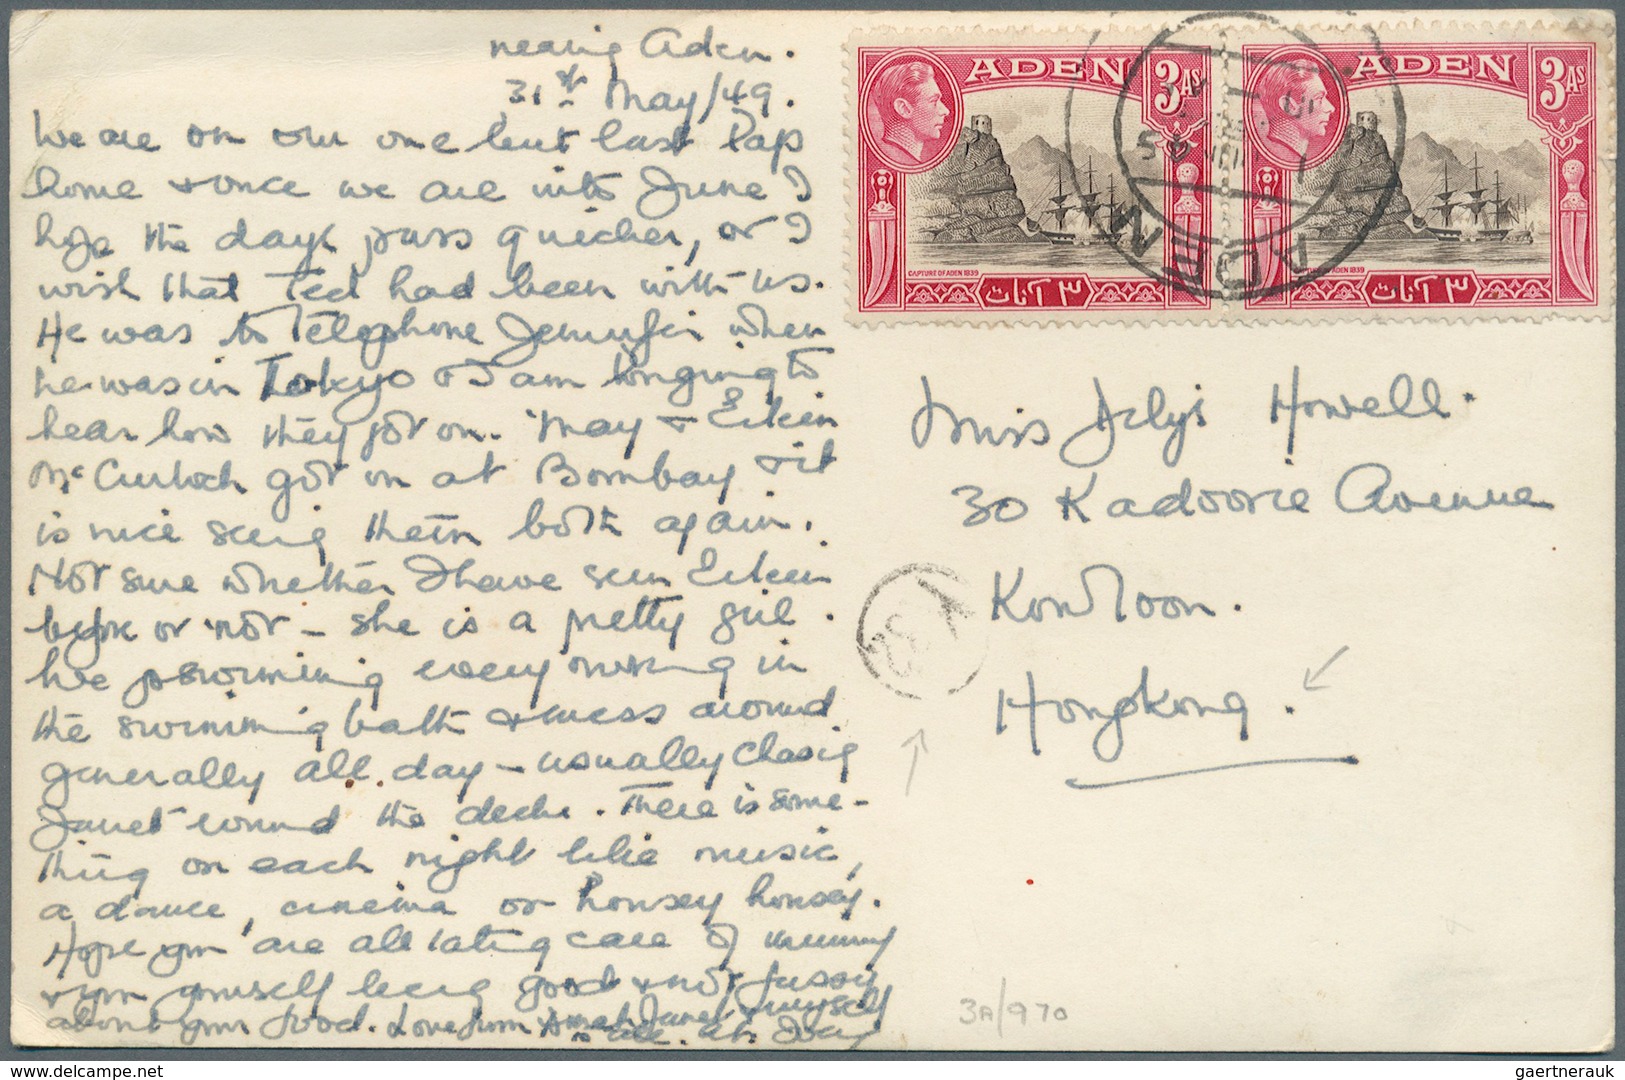 nearing Aden.
31st May/49.
We are on our one but last lap
home & once we are into June I
hope the days pass quicker, or I
wish that Ted had been with us.
He was to telephone Jennifer when
he was in Tokyo & I am longing to
hear how they got on. May & Eileen
McCulloch got on at Bombay & it
is nice seeing them both again.
Not sure whether I have seen Eileen
before or not - she is a pretty girl.
We swimming every morning in
the swimming bath & mess around
generally all day - usually chasing
Janet round the decks. There is some-
thing on each night like music,
a dance, cinema or housey housey.
Hope you are all taking care of mummy
& you yourself being good & not fussy
about your food. Love from Janet & myself
ADEN
3AS
CAPTURE OF ADEN 1839
٣ آنات
ADEN
3AS
CAPTURE OF ADEN 1839
٣ آنات
ADEN
Miss Jelys Howell.
30 Kadoorie Avenue
Kowloon.
Hongkong.
32
3A/970
www.delcampe.net
gaertnerauk